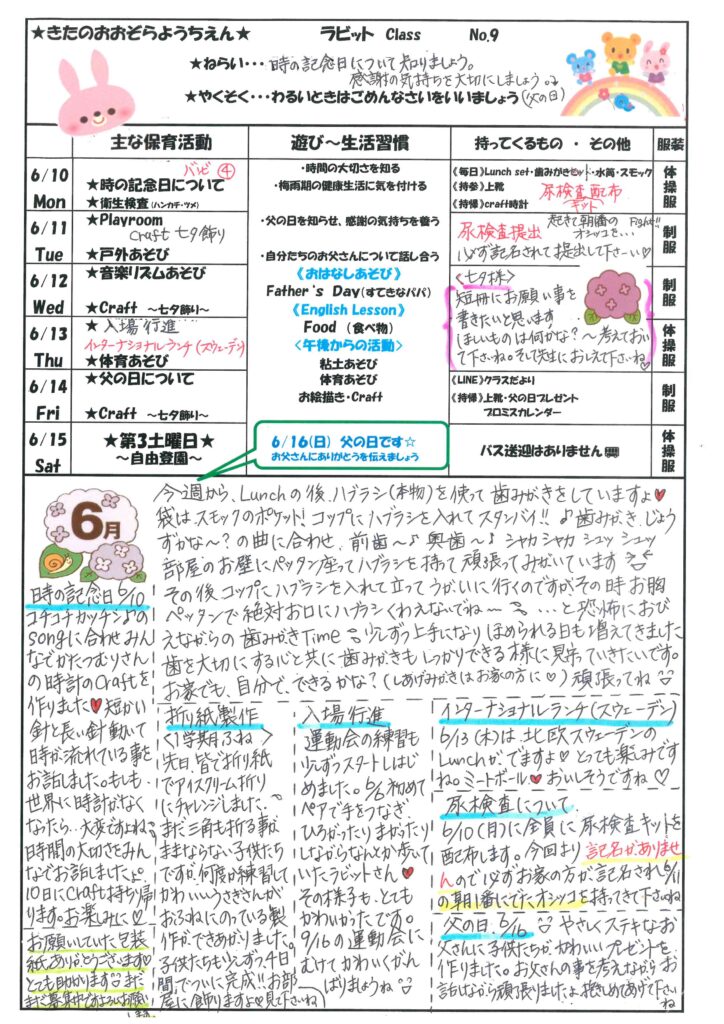 ★きたのおおぞらようちえん★ ラビット Class No.9
★ねらい・・・時の記念日について知りましょう。
感謝の気持ちを大切にしましょう。
★やくそく・・・わるいときはごめんなさいをいいましょう(父の日)
主な保育活動 遊び～生活習慣 持ってくるもの ・ その他 服装
6/10
Mon
バビ④
★時の記念日について
★衛生検査(ハンカチ・ツメ)
6/11
Tue
★Playroom
Craft 七夕飾り
★戸外あそび
6/12
Wed
★音楽リズムあそび
★Craft ～七夕飾り～
6/13
Thu
★入場行進
インターナショナルランチ(スウェーデン)
★体育あそび
6/14
Fri
★父の日について
★Craft ～七夕飾り～
6/15
Sat
★第3土曜日★
～自由登園～
・時間の大切さを知る
・梅雨期の健康生活に気を付ける
・父の日を知らせ、感謝の気持ちを養う
・自分たちのお父さんについて話し合う
《おはなしあそび》
Father's Day(すてきなパパ)
《English Lesson》
Food (食べ物)
<午後からの活動>
粘土あそび
体育あそび
お絵描き・Craft
6/16(日) 父の日です☆
お父さんにありがとうを伝えましょう
《毎日》Lunch set・歯みがきセット・水筒・スモック
《持参》上靴 尿検査配布
《持帰》craft時計 キット
体操服
尿検査提出 起きて朝1番の Fight!!
オシッコを…
必ず記名されて提出して下さーい♡
制服
<七夕株>
短冊にお願い事を
書きたいと思います
ほしいものは何かな?～考えておい
て下さいね。そして先生におしえて下さいね♡
制服
体操服
《LINE》クラスだより
《持帰》上靴・父の日プレゼント
プロミスカレンダー
制服
バス送迎はありません
体操服
6月
今週から、Lunchの後、ハブラシ(本物)を使って歯みがきをしていますよ♥
袋はスモックのポケット!コップにハブラシを入れてスタンバイ!!♪歯みがき、じょう
ずかな～?の曲に合わせ、前歯～♪奥歯～♪シャカシャカシュッシュッ
部屋のお壁にペッタン座ってハブラシを持って頑張ってみがいています
その後コップにハブラシを入れて立ってうがいに行くのですが、その時お胸
ペッタンで絶対お口にハブラシくわえないでね～ …と恐怖におび
えながらの歯みがきTime 少しずつ上手になり ほめられる日も増えてきました
歯を大切にする心と共に歯みがきもしっかりできる様に見守っていきたいです。
お家でも、自分で、できるかな?(しあげみがきはお家の方に♡)頑張ってね
時の記念日 6/10
コチコチカッチン♪の
songに合わせみん
なでかたつむりさん
の時計のCraftを
作りました♥短かい
針と長い針動いて
時が流れている事を
お話しました。もしも
世界に時計がなく
なったら…大変ですよね。
時間の大切さをみん
なでお話しましたよ。
10日にCraft持ち帰
ります。お楽みに♡
お願いしていた包装
紙ありがとうございます♡
とても助かります まだ
まだ募集中です
折り紙製作
<1学期ふね>
先日、皆で折り紙
でアイスクリーム折り
にチャレンジしました。
まだ三角も折る事が
ままならない子供たち
ですが、何度か練習して
かわいいうさぎさんが
おふねにのっている製
作ができあがりました。
子供たちも少しずつ、4日
間でついに完成!!お部
屋に飾りますよ♡見て下さいね
入場行進
運動会の練習も
少しずつスタートしはじ
めました。6/6初めて
ペアで手をつなぎ、
ひろがったりまがったり
しながらなんとか歩いて
いたラビットさん♡
その様子も、とても
かわいかったです。
9/16の運動会に
むけてかわいくがん
ばりましょうね
インターナショナルランチ(スウェーデン)
6/13(木)は北欧スウェーデンの
Lunchがでますよ♡とっても楽しみです
ね。ミートボール♥おいしそうですね♡
尿検査について
6/10(月)に全員に尿検査キットを
配布します。今回より記名がありませ
んので必ずお家の方が記名され6/11
の朝1番にでたオシッコを持ってきて下さいね
父の日、6/16 やさしくステキなお
父さんに子供たちが、かわいいプレゼントを
作りました。お父さんの事を考えながらお
話しながら頑張りましたよ 抱きしめてあげて下さいね